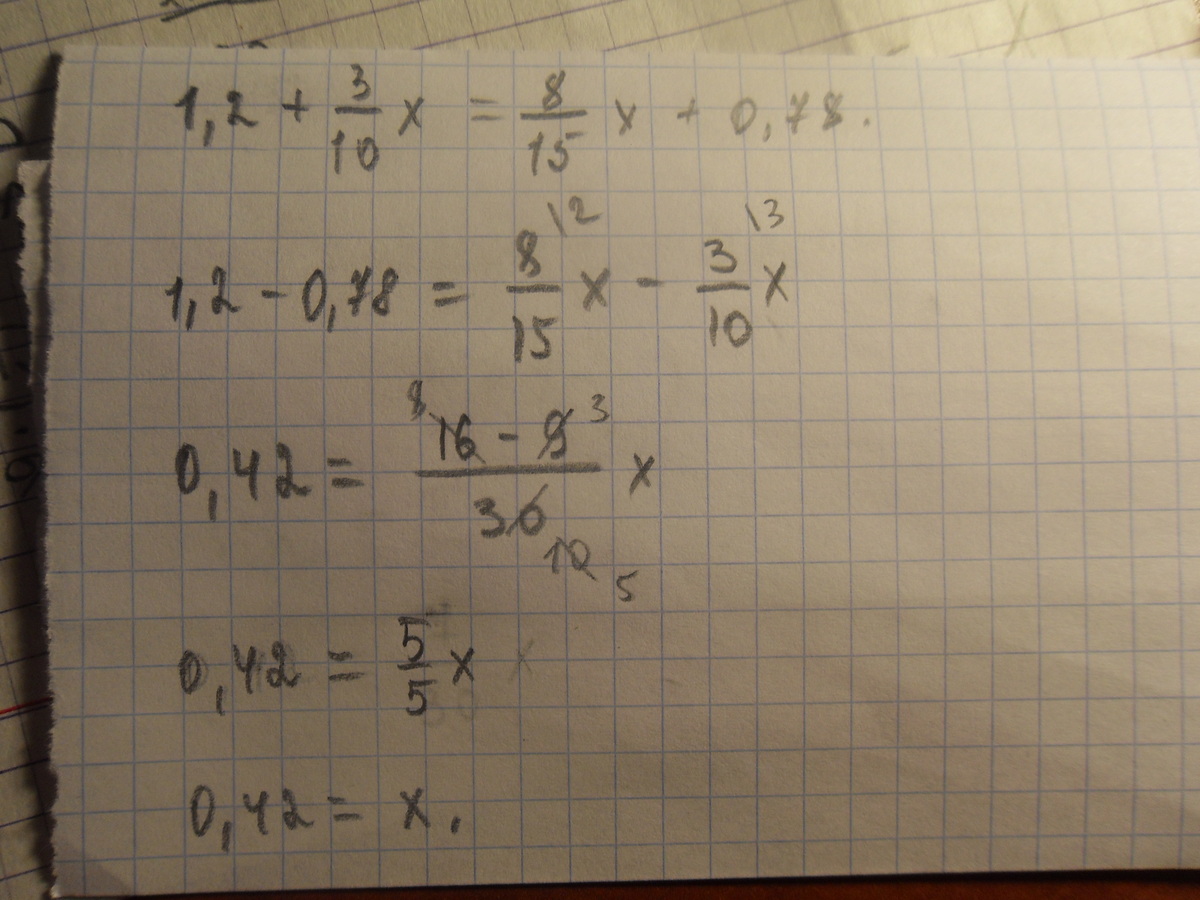 1,2 + 3/10 x = 8/15 x + 0,78.
1,2 - 0,78 = 8/15 \2 x - 3/10 \3 x
0,42 = 8 16 - 9 3 / 30 10 5 x
0,42 = 5/5 x
0,42 = x.